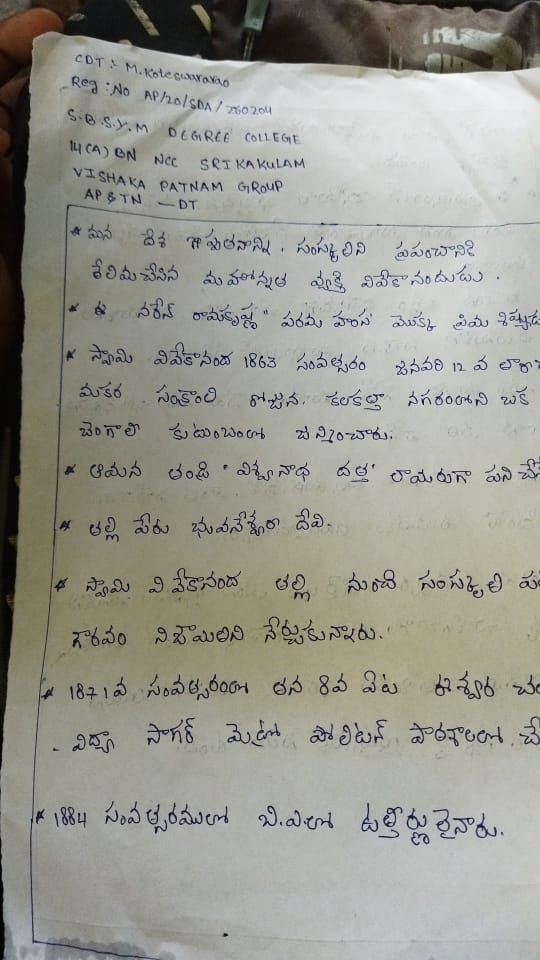 CDT :- M. Koteswararao
Reg : No AP/20/SDA/260204
S.B.S.Y.M DEGREE COLLEGE
14(A) BN NCC SRIKAKULAM
VISHAKA PATNAM GROUP
AP & TN - DT
* మన దేశ సంస్కృతిని ప్రపంచానికి
తెలియచేసిన మహోన్నత వ్యక్తి వివేకానందుడు.
* ఈ నరేన్ రామకృష్ణ "పరమ హంస" యొక్క ప్రియ
* స్వామి వివేకానంద 1863 సంవత్సరం జనవరి 12 వ
మకర సంక్రాంతి రోజున. కలకత్తా నగరంలోని ఒక
బెంగాలీ కుటుంబంలో జన్మించారు.
* ఆయన తండ్రి "విశ్వనాథ దత్త" లాయరుగా పని
* తల్లి పేరు భువనేశ్వరీ దేవి.
* స్వామి వివేకానంద తల్లి నుంచి సంస్కృతి
గౌరవం నిజాయితీని నేర్చుకున్నారు.
* 1871 వ సంవత్సరంలో తన 8వ ఏట ఈశ్వర
విద్యా సాగర్ మెట్రో పోలిటన్ పాఠశాలలో
* 1884 సంవత్సరములో బి.ఎలో ఉత్తీర్ణులైనారు.